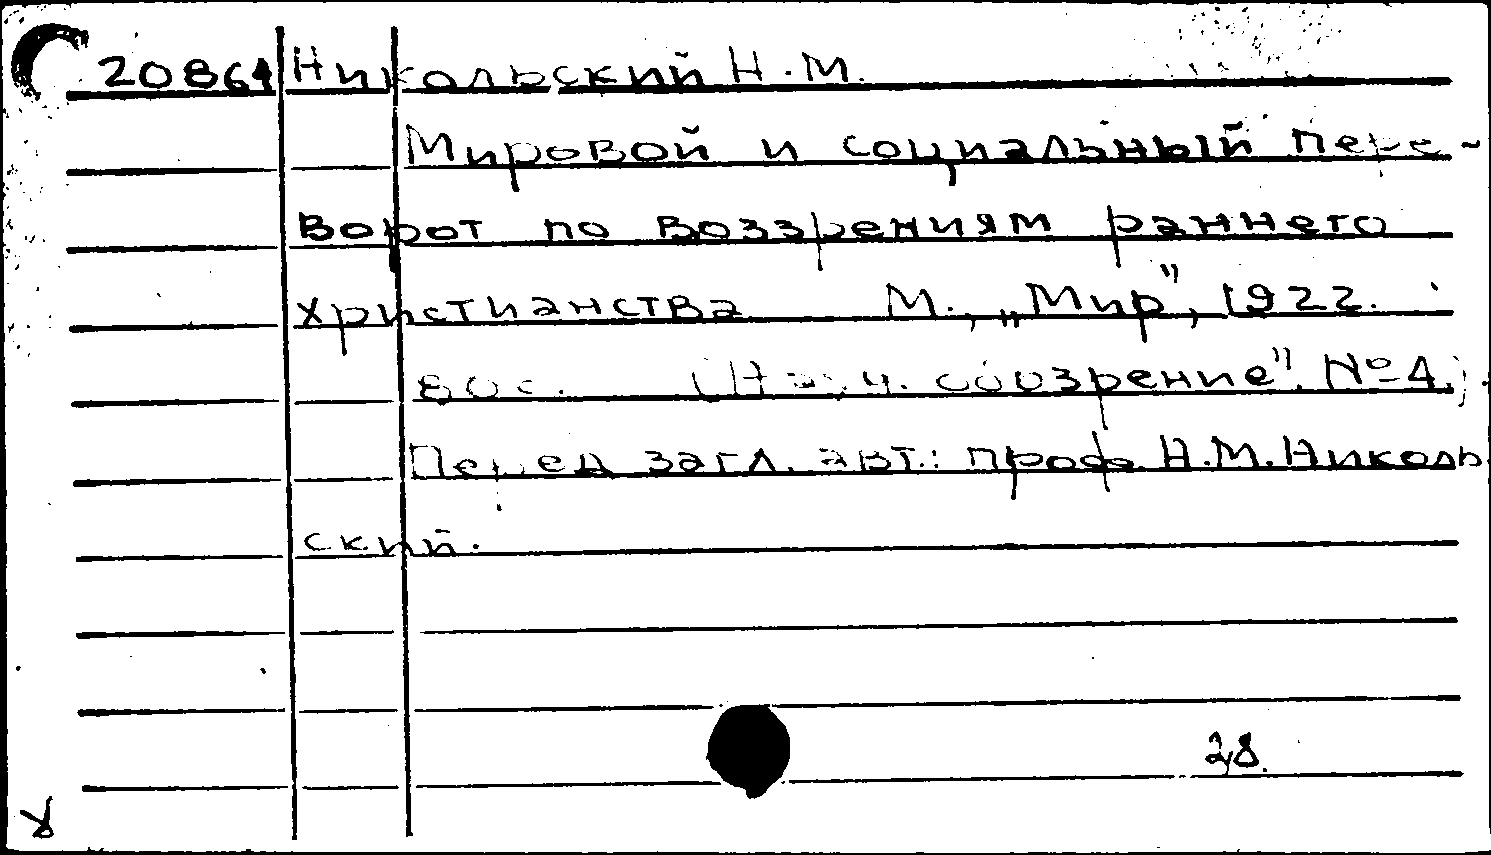 20864 Никольский Н.М.
Мировой и социальный пере-
ворот по воззрениям раннего
христианства М., „Мир", 1922.
80 с. обозрение". № 4.).
Перед загл. авт.: проф. Н.М. Николь
ский.
28.